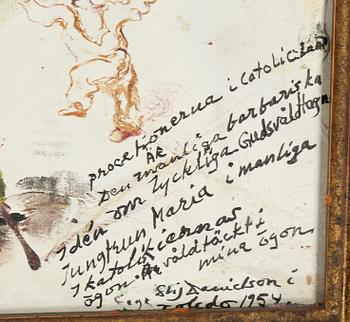 procetionerna i catolicism
ÄR
Den manliga barbariska
iden om lyckliga Gudsvåldtagn
Jungfrun Maria i manliga
katolikernas
ögon. våldtäckt i
mina ögon
Stig Danielson i
Toledo 1954